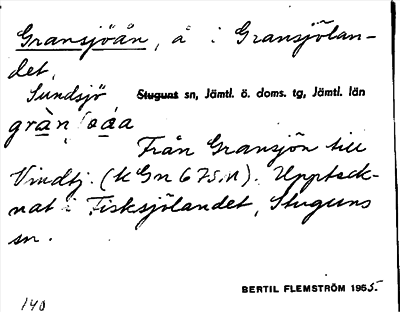 Gransjöån, å i Gransjölan-
det,
Sundsjö Stuguns sn, Jämtl. ö. doms. tg, Jämtl. län
Från Gransjön till
Vindtj. (k Gn 675,N). Uppteck-
nat i Fisksjölandet, Stuguns
sn.
BERTIL FLEMSTRÖM 1965.
140